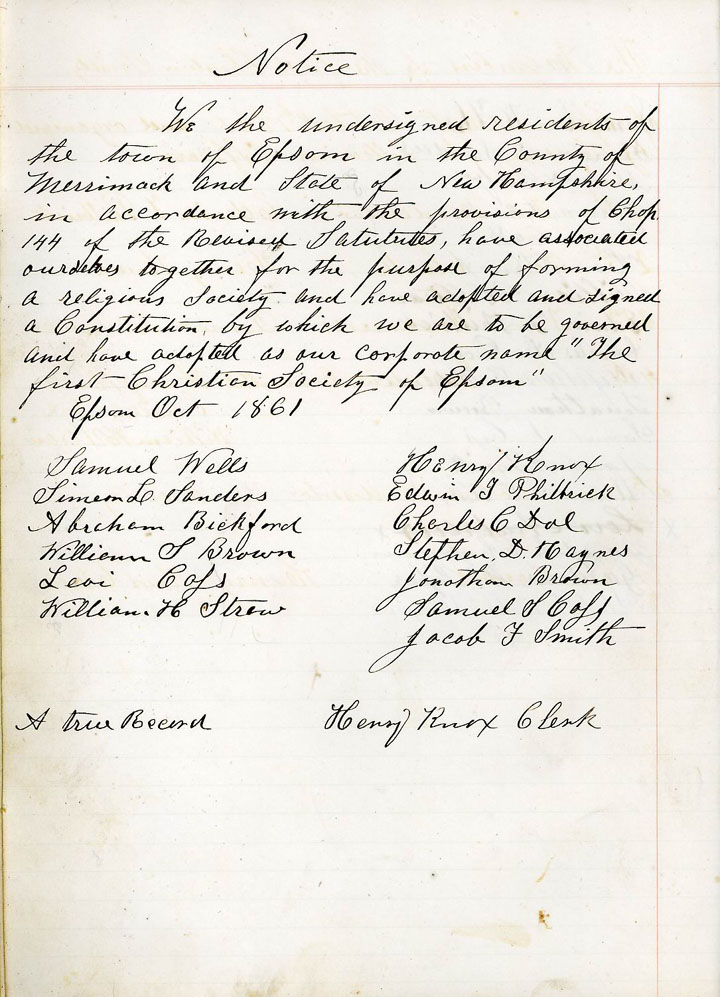 Notice
We the undersigned residents of
the town of Epsom in the County of
Merrimack and State of New Hampshire,
in accordance with the provisions of Chap
144 of the Revised Satututes, have associated
ourselves together for the purpose of forming
a religious Society and have adopted and signed
a Constitution, by which we are to be governed
and have adopted as our corporate name "The
first Christian Society of Epsom"
Epsom Oct 1861
Samuel Wells
Simeon L. Sanders
Abraham Bickford
William S Brown
Levi Cass
William. H Straw
Henry Knox
Edwin F Philbrick
Charles C Doe
Stephen. D. Haynes
Jonathan Brown
Samuel S Cass
Jacob F Smith
A true Record
Henry Knox Clerk